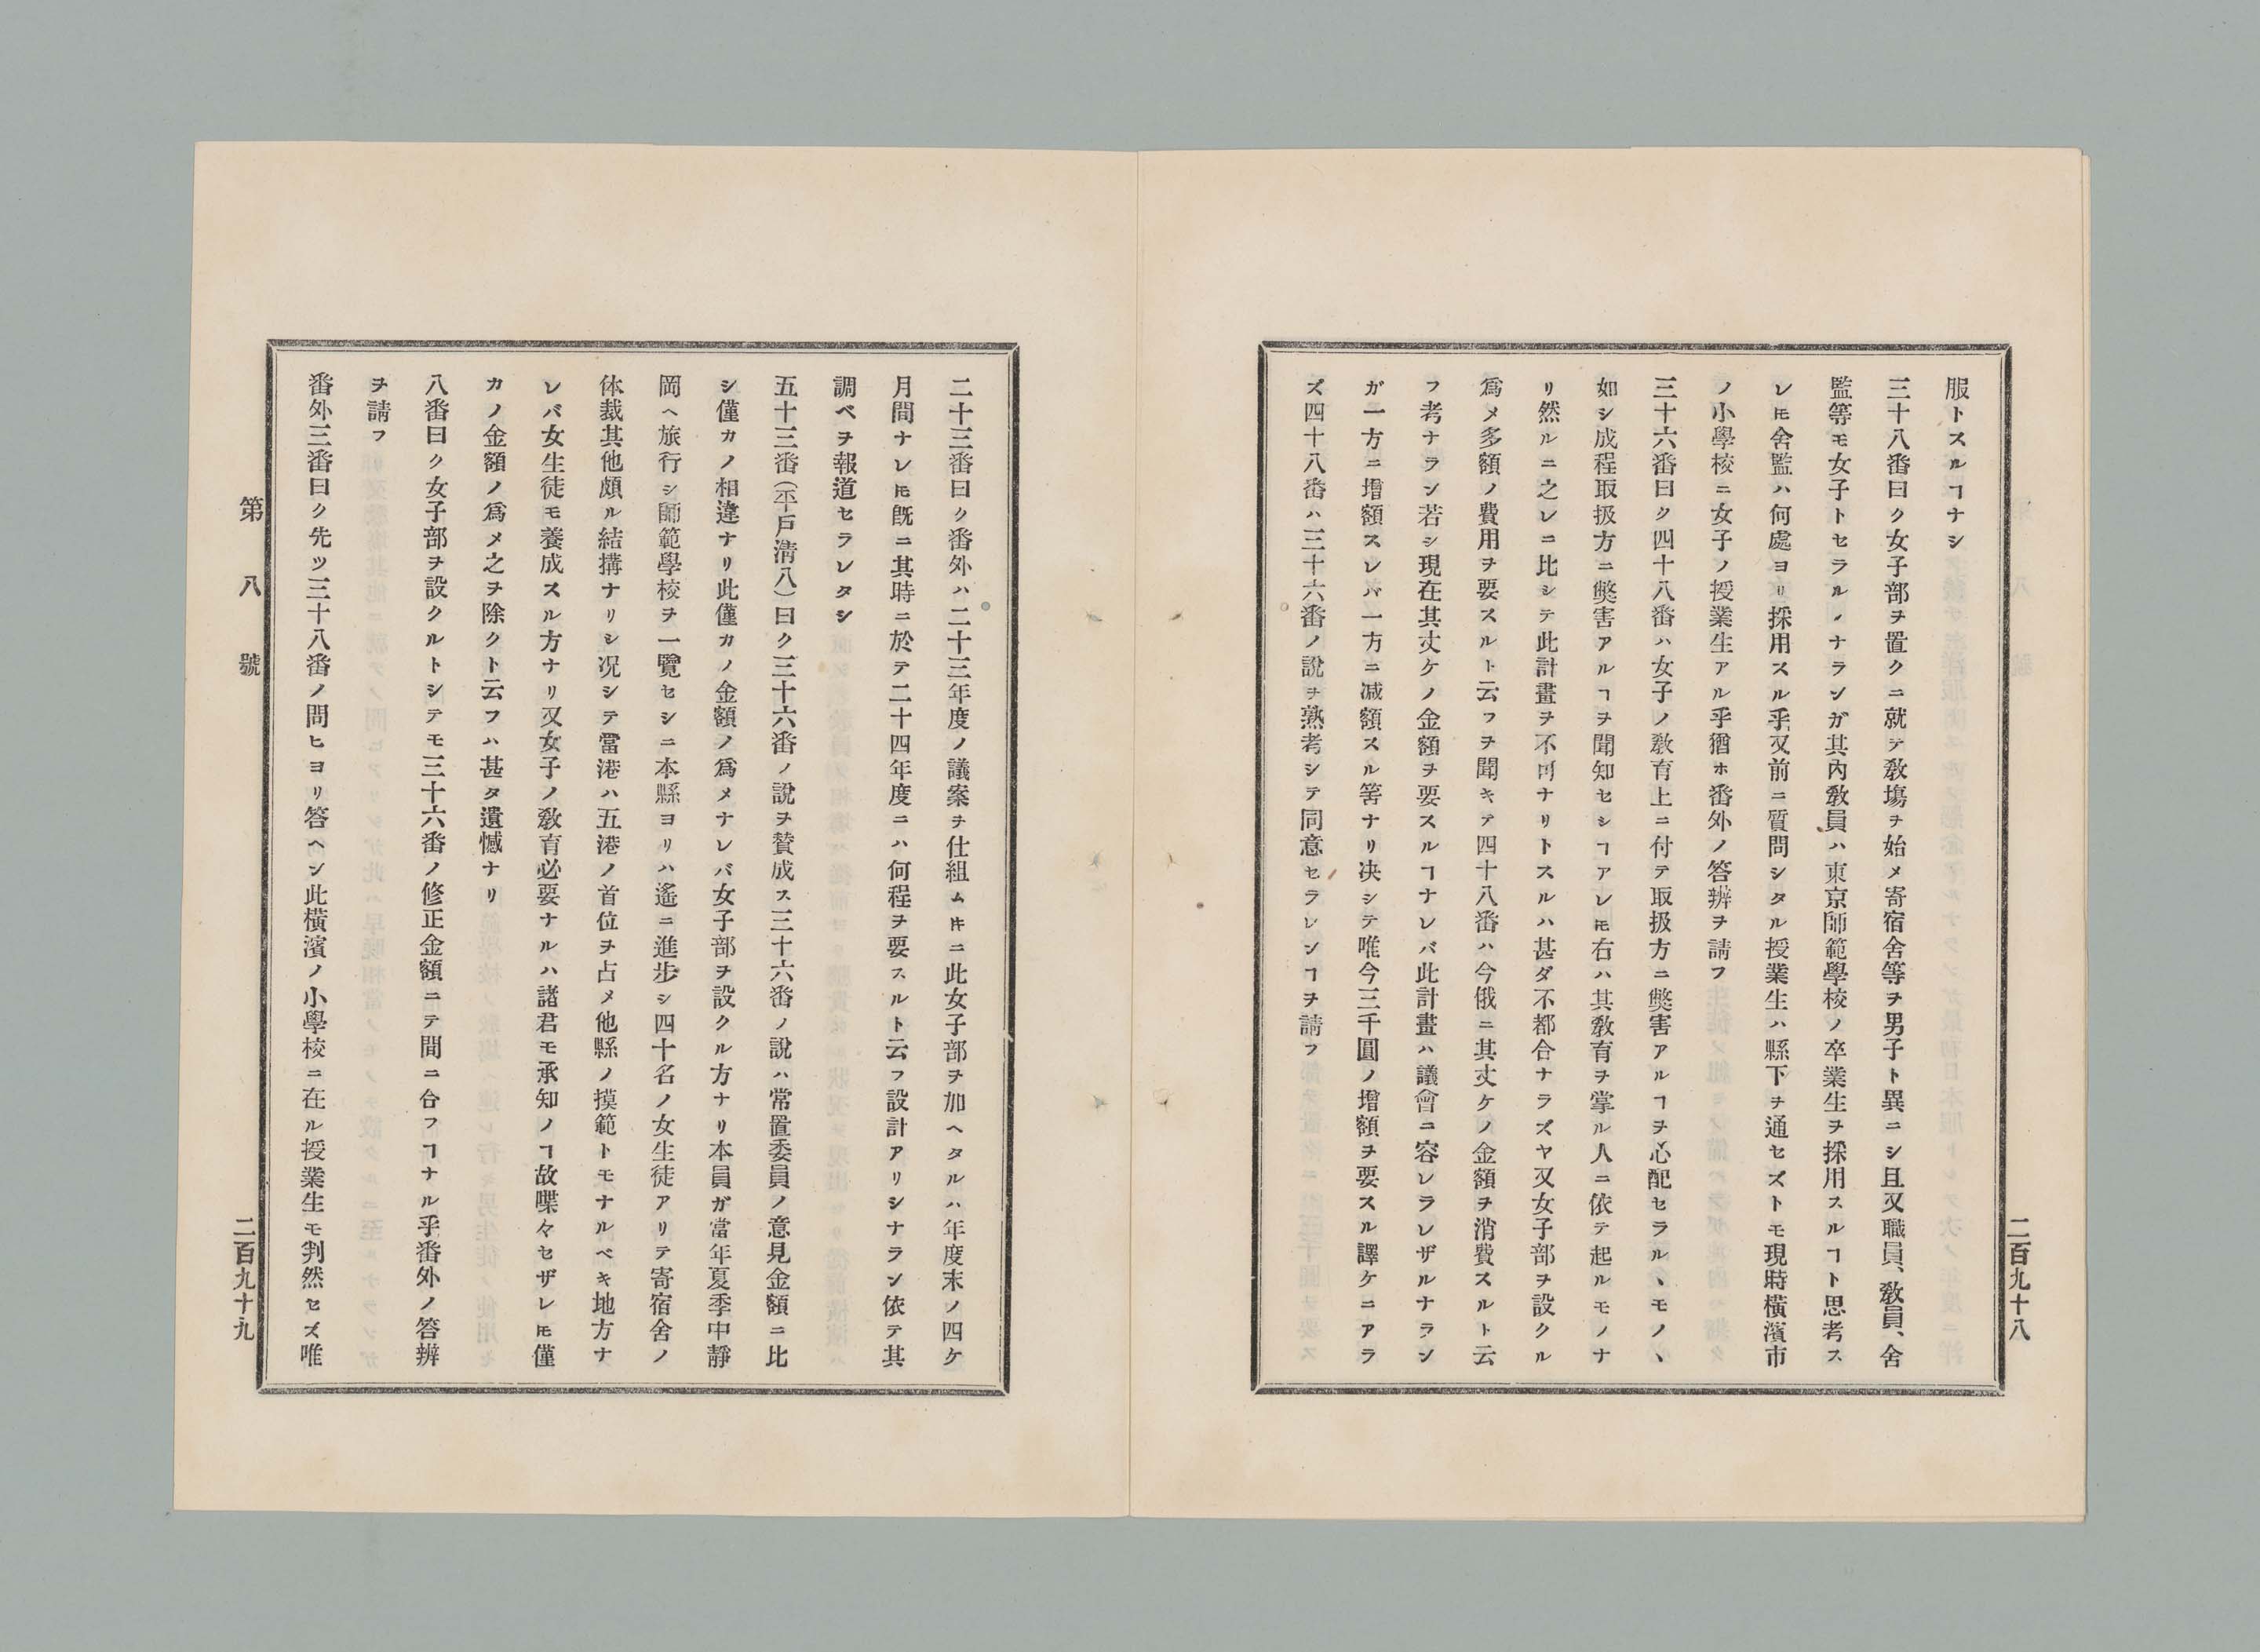 服トスルヿナシ
三十八番曰ク女子部ヲ置クニ就テ敎塲ヲ始メ寄宿舍等ヲ男子ト異ニシ且又職員、敎員、舍
監等モ女子トセラルヽナランガ其內敎員ハ東京師範學校ノ卒業生ヲ採用スルヿト思考ス
レ𪜈舍監ハ何處ヨリ採用スル乎又前ニ質問シタル授業生ハ縣下ヲ通セズトモ現時橫濱市
ノ小學校ニ女子ノ授業生アル乎猶ホ番外ノ答辨ヲ請フ
三十六番曰ク四十八番ハ女子ノ敎育上ニ付テ取扱方ニ獘害アルヿヲ心配セラルヽモノヽ
如シ成程取扱方ニ獘害アルヿヲ聞知セシヿアレ𪜈右ハ其敎育ヲ掌ル人ニ依テ起ルモノナ
リ然ルニ之レニ比シテ此計畫ヲ不可ナリトスルハ甚ダ不都合ナラズヤ又女子部ヲ設クル
爲メ多額ノ費用ヲ要スルト云フヲ聞キテ四十八番ハ今俄ニ其丈ケノ金額ヲ消費スルト云
フ考ナラン若シ現在其丈ケノ金額ヲ要スルヿナレバ此計畫ハ議會ニ容レラレザルナラン
ガ一方ニ增額スレバ一方ニ减額スル筈ナリ决シテ唯今三千圓ノ增額ヲ要スル譯ケニアラ
ズ四十八番ハ三十六番ノ說ヲ熟考シテ同意セラレンヿヲ請フ
二百九十八
二十三番曰ク番外ハ二十三年度ノ議案ヲ仕組ム𪜈ニ此女子部ヲ加ヘタルハ年度末ノ四ケ
月間ナレ𪜈旣ニ其時ニ於テ二十四年度ニハ何程ヲ要スルト云フ設計アリシナラン依テ其
調ベヲ報道セラレタシ
五十三番（平戶淸八）曰ク三十六番ノ說ヲ賛成ス三十六番ノ說ハ常置委員ノ意見金額ニ比
シ僅カノ相違ナリ此僅カノ金額ノ爲メナレバ女子部ヲ設クル方ナリ本員ガ當年夏季中靜
岡ヘ旅行シ師範學校ヲ一覽セシニ本縣ヨリハ遙ニ進步シ四十名ノ女生徒アリテ寄宿舍ノ
体裁其他頗ル結搆ナリシ况シテ當港ハ五港ノ首位ヲ占メ他縣ノ摸範トモナルベキ地方ナ
レバ女生徒モ養成スル方ナリ又女子ノ敎育必要ナルハ諸君モ承知ノヿ故喋々セザレ𪜈僅
カノ金額ノ爲メ之ヲ除クト云フハ甚タ遺憾ナリ
八番曰ク女子部ヲ設クルトシテモ三十六番ノ修正金額ニテ間ニ合フヿナル乎番外ノ答辨
ヲ請フ
番外三番曰ク先ツ三十八番ノ問ヒヨリ答ヘン此橫濱ノ小學校ニ在ル授業生モ判然セズ唯
第八號
二百九十九